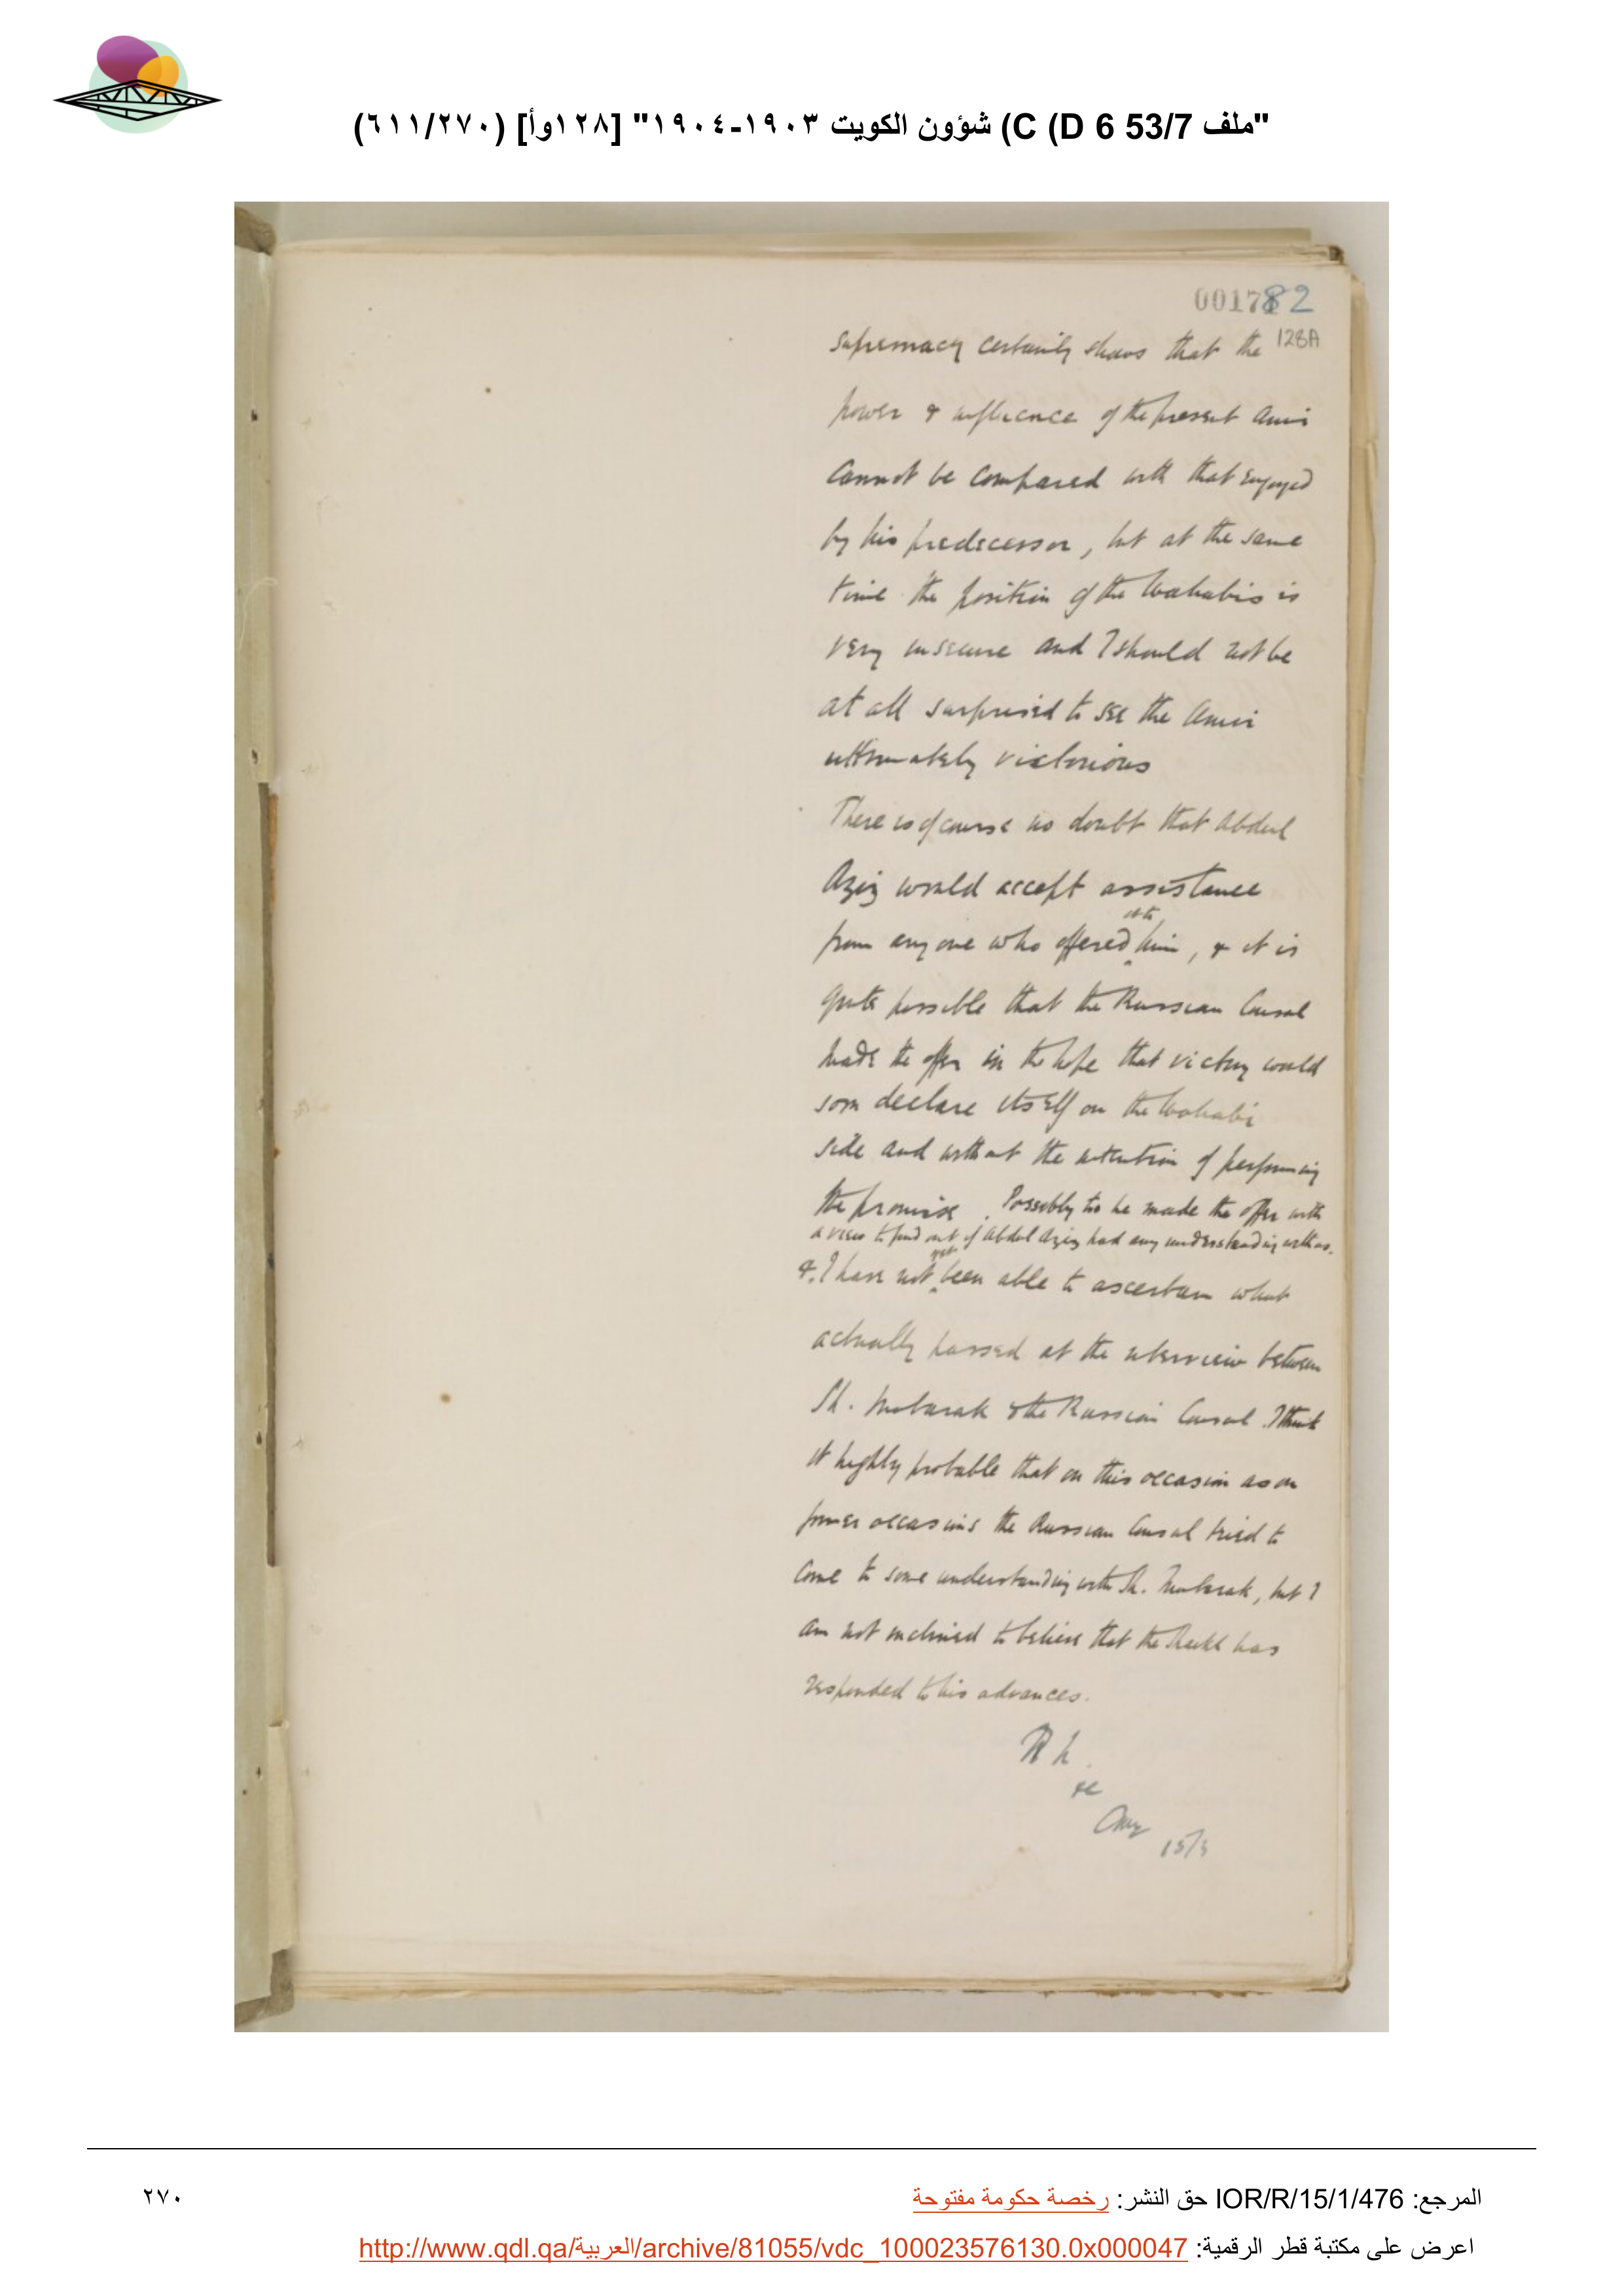 "ملف 53/7 D 6) C) شؤون الكويت ١٩٠٣-١٩٠٤" [١٢٨وأ] (٢٧٠/٦١١)
0017182
128A
supremacy certainly shows that the
power & influence of the present Amir
cannot be compared with that enjoyed
by his predecessor, but at the same
time the position of the Wahabis is
very insecure and I should not be
at all surprised to see the Amir
ultimately victorious
There is of course no doubt that Abdul
Aziz would accept assistance
from any one who offered it to him, & it is
quite possible that the Russian Consul
made the offer in the hope that victory would
soon declare itself on the Wahabi
side and without the intention of performing
the promise. Possibly too he made the offer with
a view to find out if Abdul Aziz had any understanding with us.
4. I have not yet been able to ascertain what
actually passed at the interview between
Sh. Mubarak & the Russian Consul. I think
it highly probable that on this occasion as on
former occasions the Russian Consul tried to
come to some understanding with Sh. Mubarak, but I
am not inclined to believe that the Sheikh has
responded to his advances.
المرجع: IOR/R/15/1/476 حق النشر: رخصة حكومة مفتوحة
٢٧٠
اعرض على مكتبة قطر الرقمية: http://www.qdl.qa/العربية/archive/81055/vdc_100023576130.0x000047